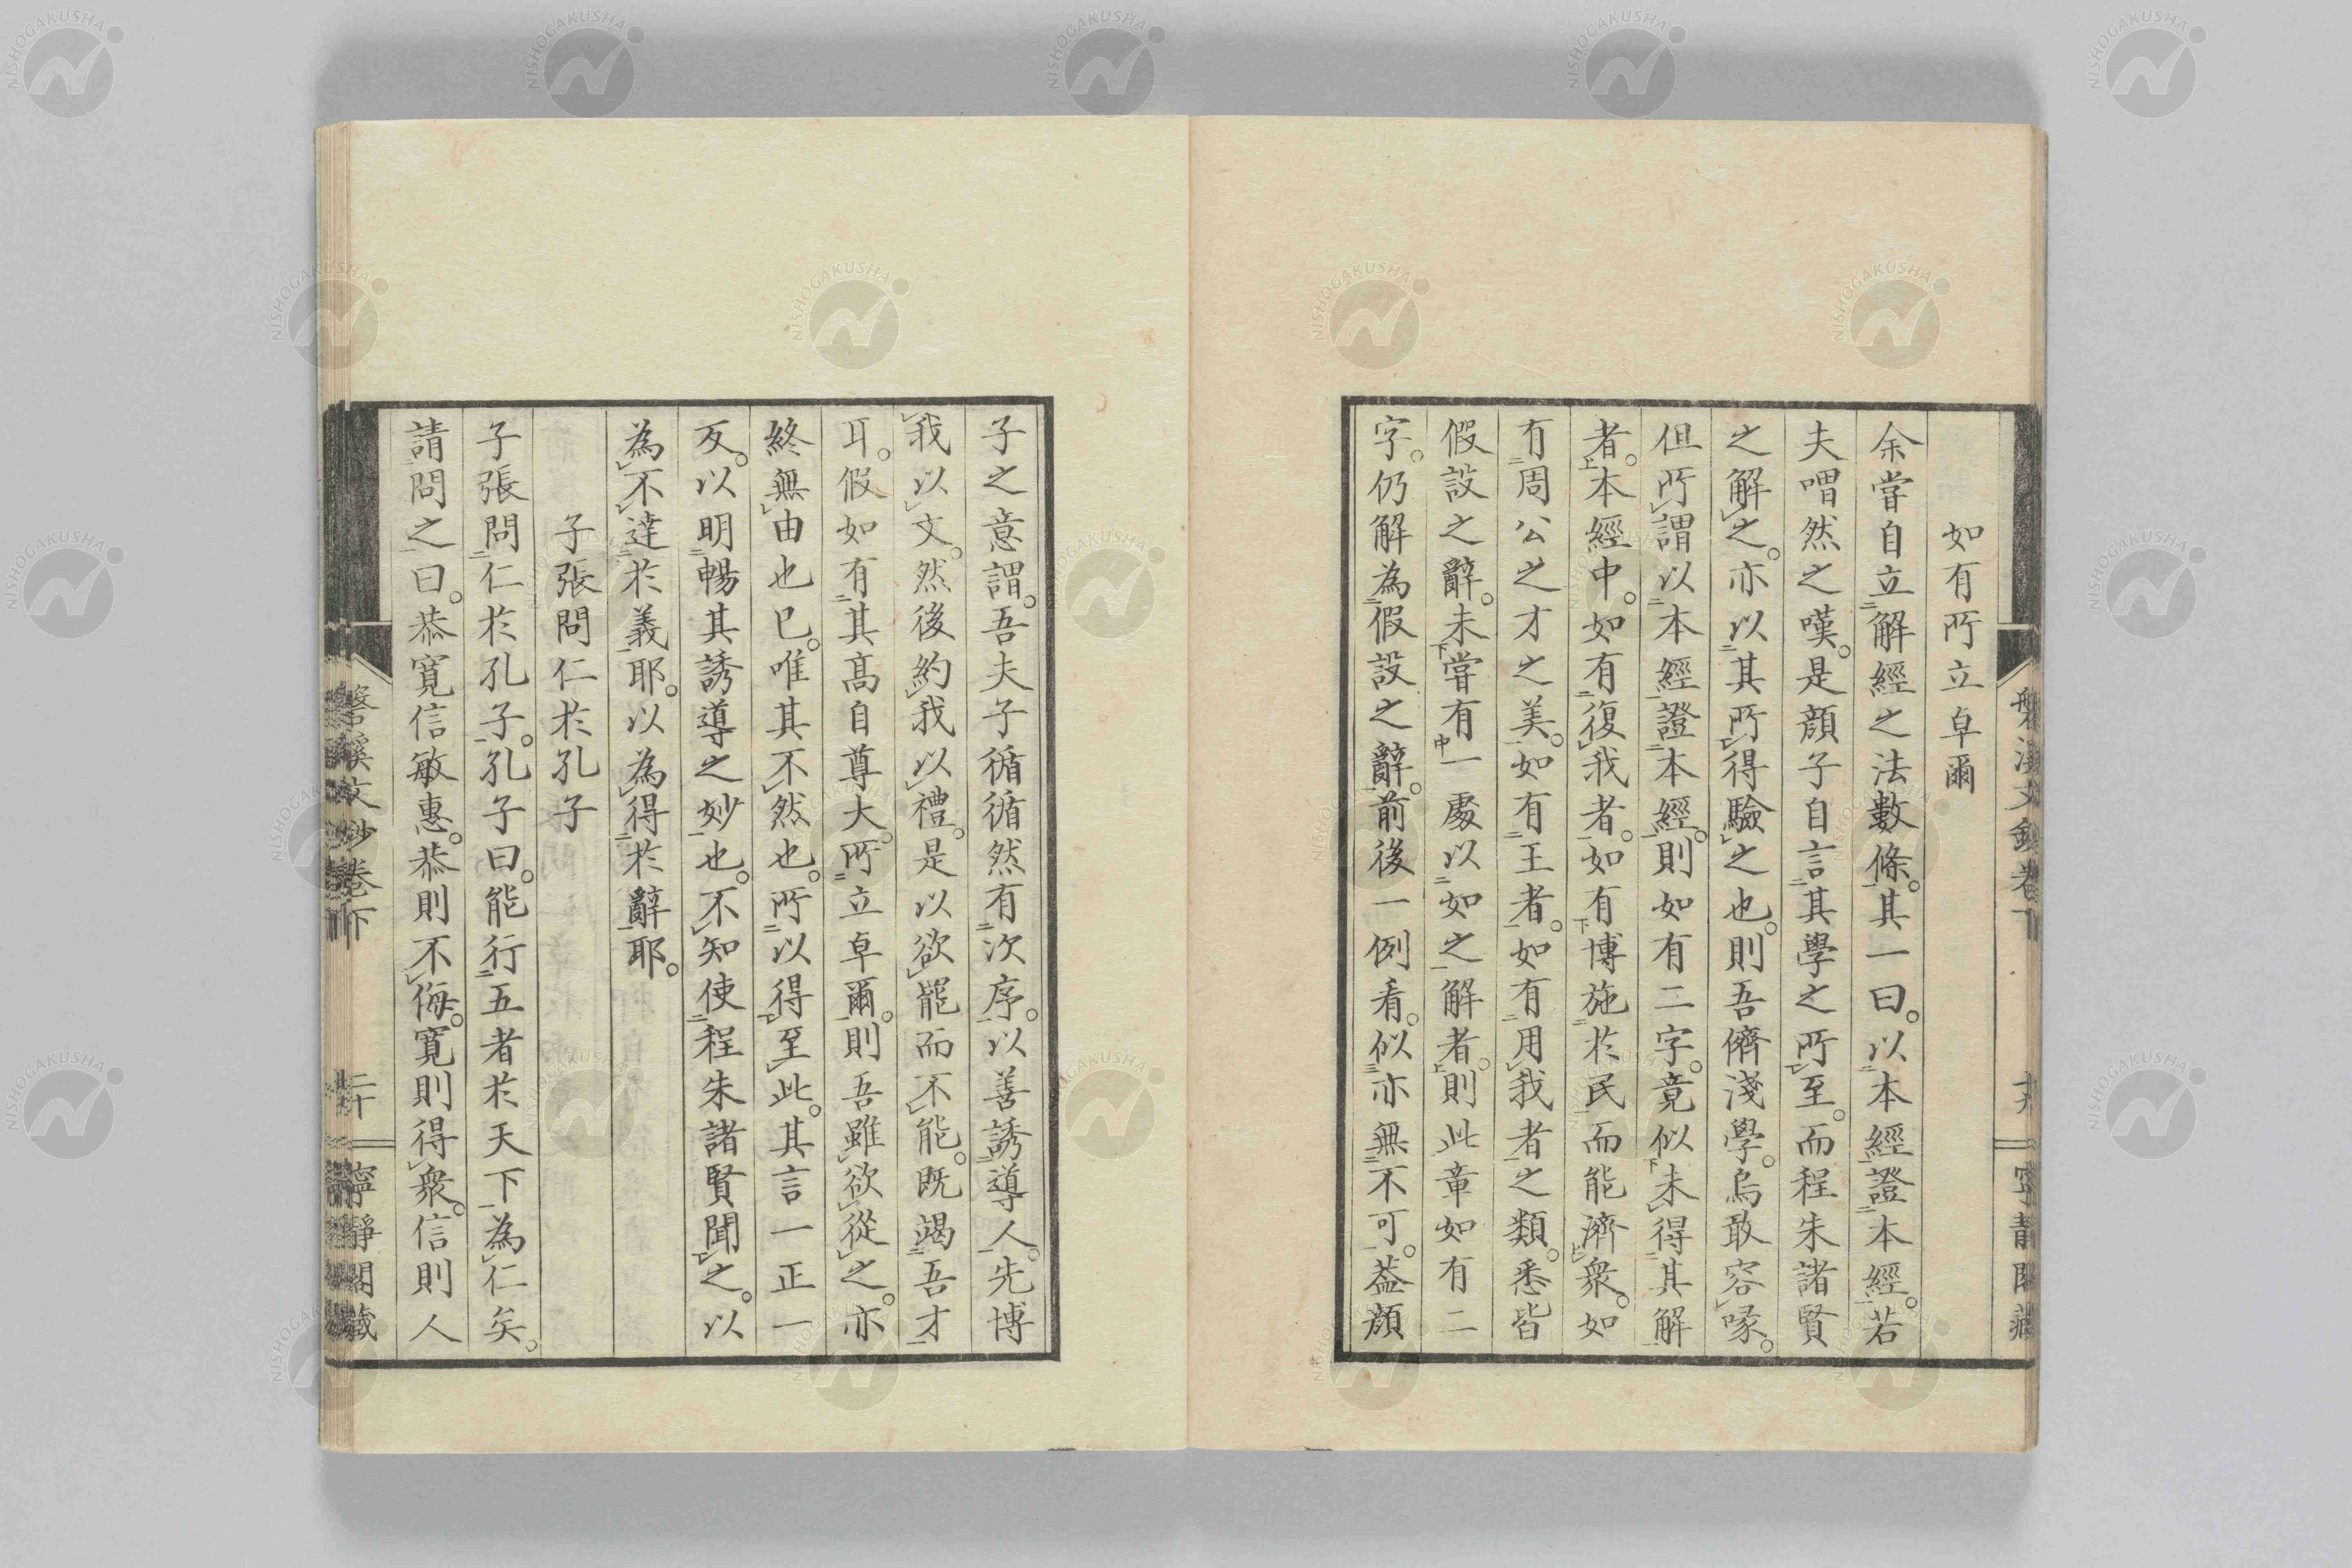 如有所立卓爾
余嘗自立解經之法數條。其一曰。以本經證本經。若
夫喟然之嘆。是顏子自言其學之所至。而程朱諸賢
之解之。亦以其所得驗之也。則吾儕淺學。烏敢容喙。
但所謂以本經證本經。則如有二字。竟似未得其解
者。本經中。如有復我者。如有博施於民而能濟衆。如
有周公之才之美。如有王者。如有用我者之類。悉皆
假設之辭。未嘗有一處以如之解者。則此章如有二
字。仍解為假設之辭。前後一例看。似亦無不可。蓋顏
子之意謂。吾夫子循循然有次序。以善誘導人。先博
我以文。然後約我以禮。是以欲罷而不能。既竭吾才
耳。假如有其高自尊大。所立卓爾。則吾雖欲從之。亦
終無由也已。唯其不然也。所以得至此。其言一正一
反。以明暢其誘導之妙也。不知使程朱諸賢聞之。以
為不達於義耶。以為得於辭耶。
子張問仁於孔子
子張問仁於孔子。孔子曰。能行五者於天下為仁矣。
請問之曰。恭寬信敏惠。恭則不侮。寬則得衆。信則人
磐溪文鈔卷下
二十
寧靜閣藏